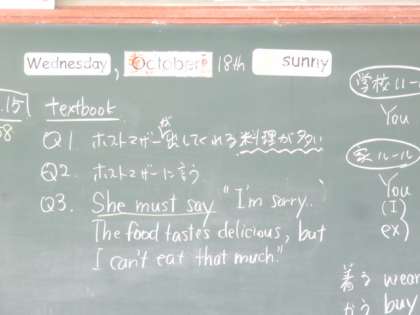 Wednesday, October 18th sunny
.15 textbook
Q1. ホストマザーが出してくれる料理が多い
Q2. ホストマザーに言う
Q3. She must say "I'm sorry.
The food tastes delicious, but
I can't eat that much."
学校ルー
You
家ルール
You
(I)
ex)
着る wear
かう buy